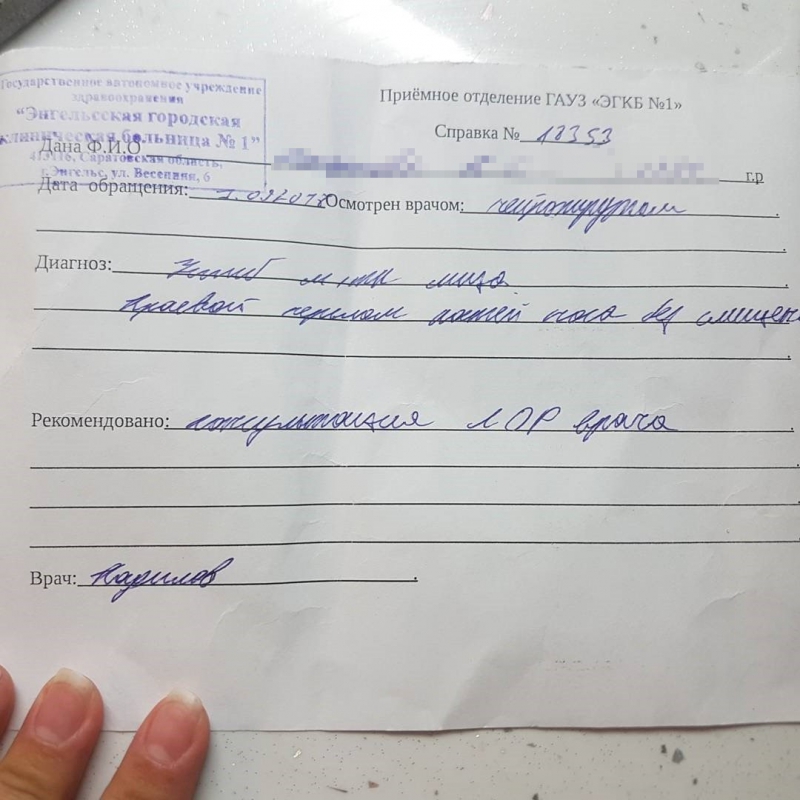 Государственное автономное учреждение
здравоохранения
"Энгельсская городская
клиническая больница № 1"
413116, Саратовская область,
г. Энгельс, ул. Весенняя, 6
Приёмное отделение ГАУЗ «ЭГКБ №1»
Справка №
Дана Ф.И.О г.р
Дата обращения: Осмотрен врачом: нейрохирургом
Диагноз: Ушиб м. тк лица.
Краевой перелом костей носа без смещен
Рекомендовано: консультация ЛОР врача
Врач: